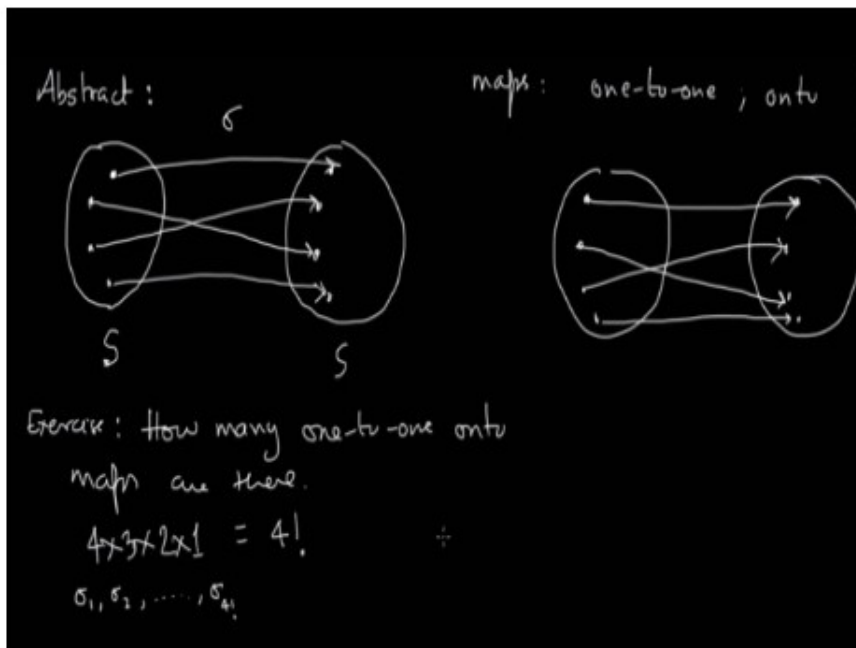 Abstract :
maps : one-to-one ; onto
σ
S S
Exercise : How many one-to-one onto
maps are there.
4×3×2×1 = 4!
σ₁, σ₂, ....., σ₄!